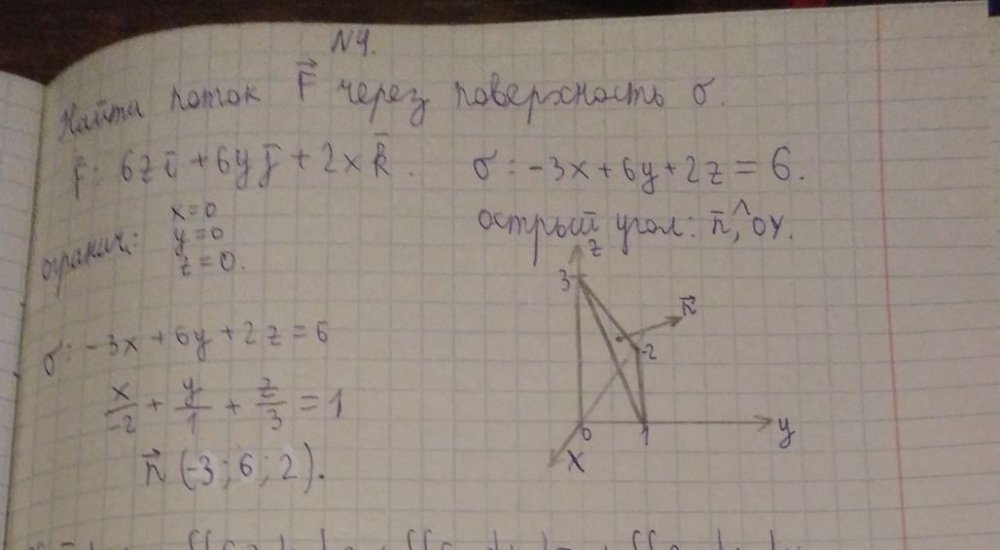 N4.
Найти поток F⃗ через поверхность σ.
F̄: 6zī + 6yj̄ + 2xk̄. σ: -3x + 6y + 2z = 6.
огранич: x=0 y=0 z=0.
острый угол: n̄,^OY.
z
3
n⃗
-2
0
1
y
x
σ: -3x + 6y + 2z = 6
x/-2 + y/1 + z/3 = 1
n⃗ (-3; 6; 2).